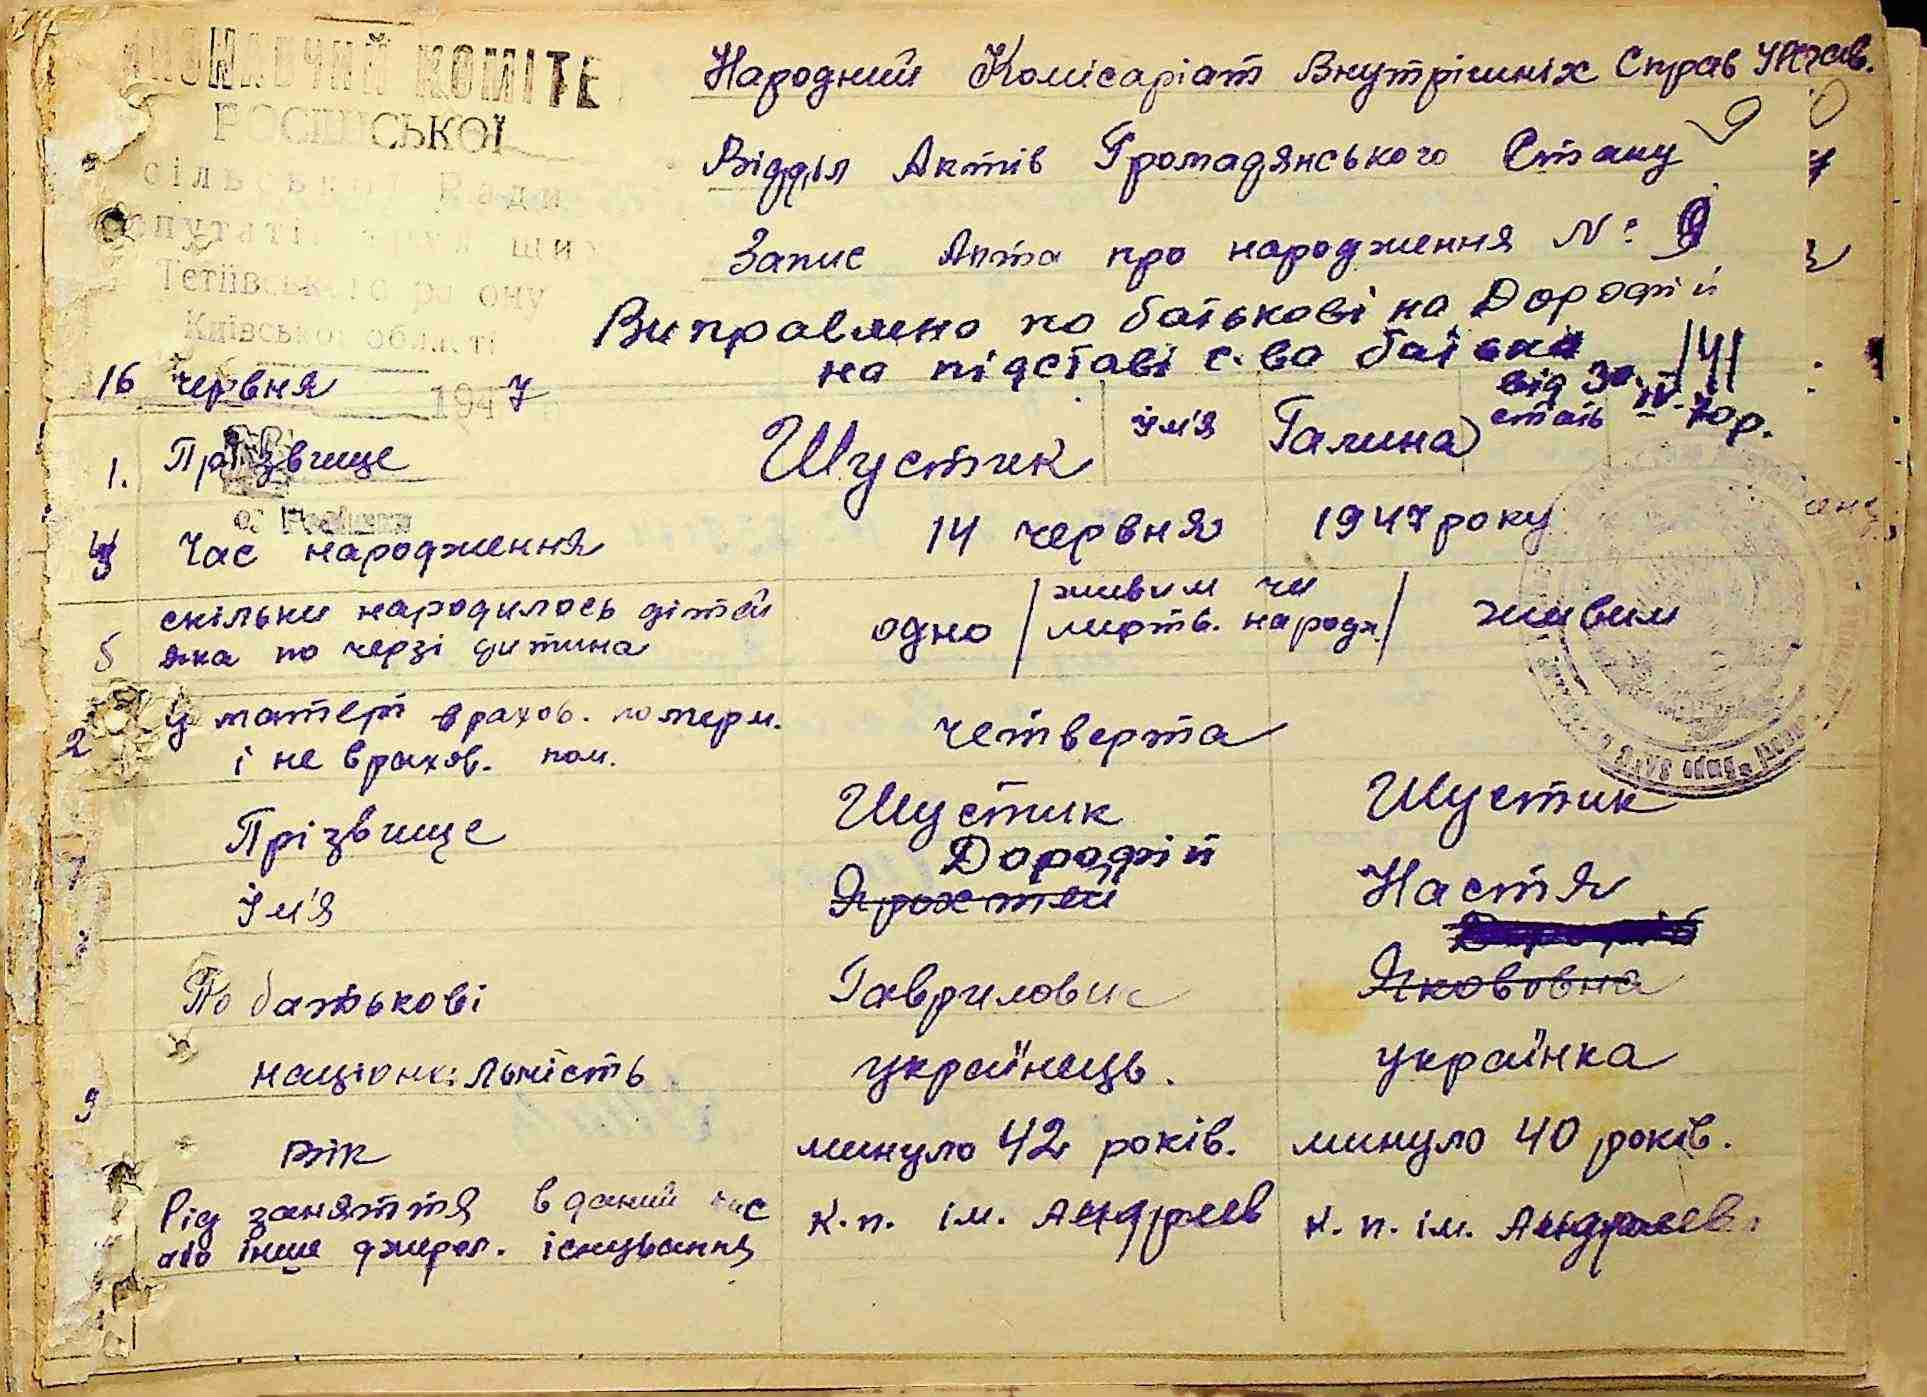 ВИКОНАВЧИЙ КОМІТЕ
РОСІШСЬКОЇ
сільської Ради
депутатів трудящих
Тетіївського району
Київської області
16 червня 1947
с. Росішка
Народний Комісаріат Внутрішніх Справ
Відділ Актів Громадянського Стану
Запис Акта про народження №: 9
Виправлено по батькові на Дорофій
на підставі с.-ва батька
від 30. IV-70р.
1. Прізвище Шустик ім'я Галина стать
Час народження 14 червня 1947 року
скільки народилось дітей
5 яка по черзі дитина одно живим чи мертв. народж. живим
У матері врахов. померл.
2 і не врахов. пом. четверта
Прізвище Шустик Шустик
Дорофій
Ім'я Настя
По батькові Гаврилович Якововна
національність українець. українка
вік минуло 42 років. минуло 40 років.
Рід заняття в даний час
або інше джерел. існування к.п. ім. Андреев к.п. ім. Андреева